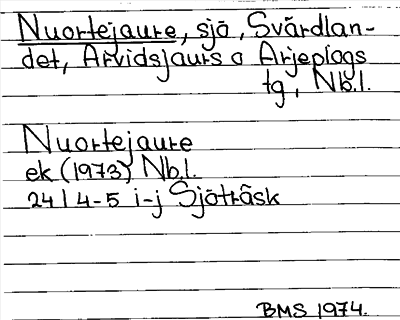 Nuortejaure, sjö, Svärdlan-
det, Arvidsjaurs o Arjeplogs
tg, Nb.l.
Nuortejaure
ek (1973) Nb.l.
24 I 4-5 i-j Sjöträsk
BMS 1974.